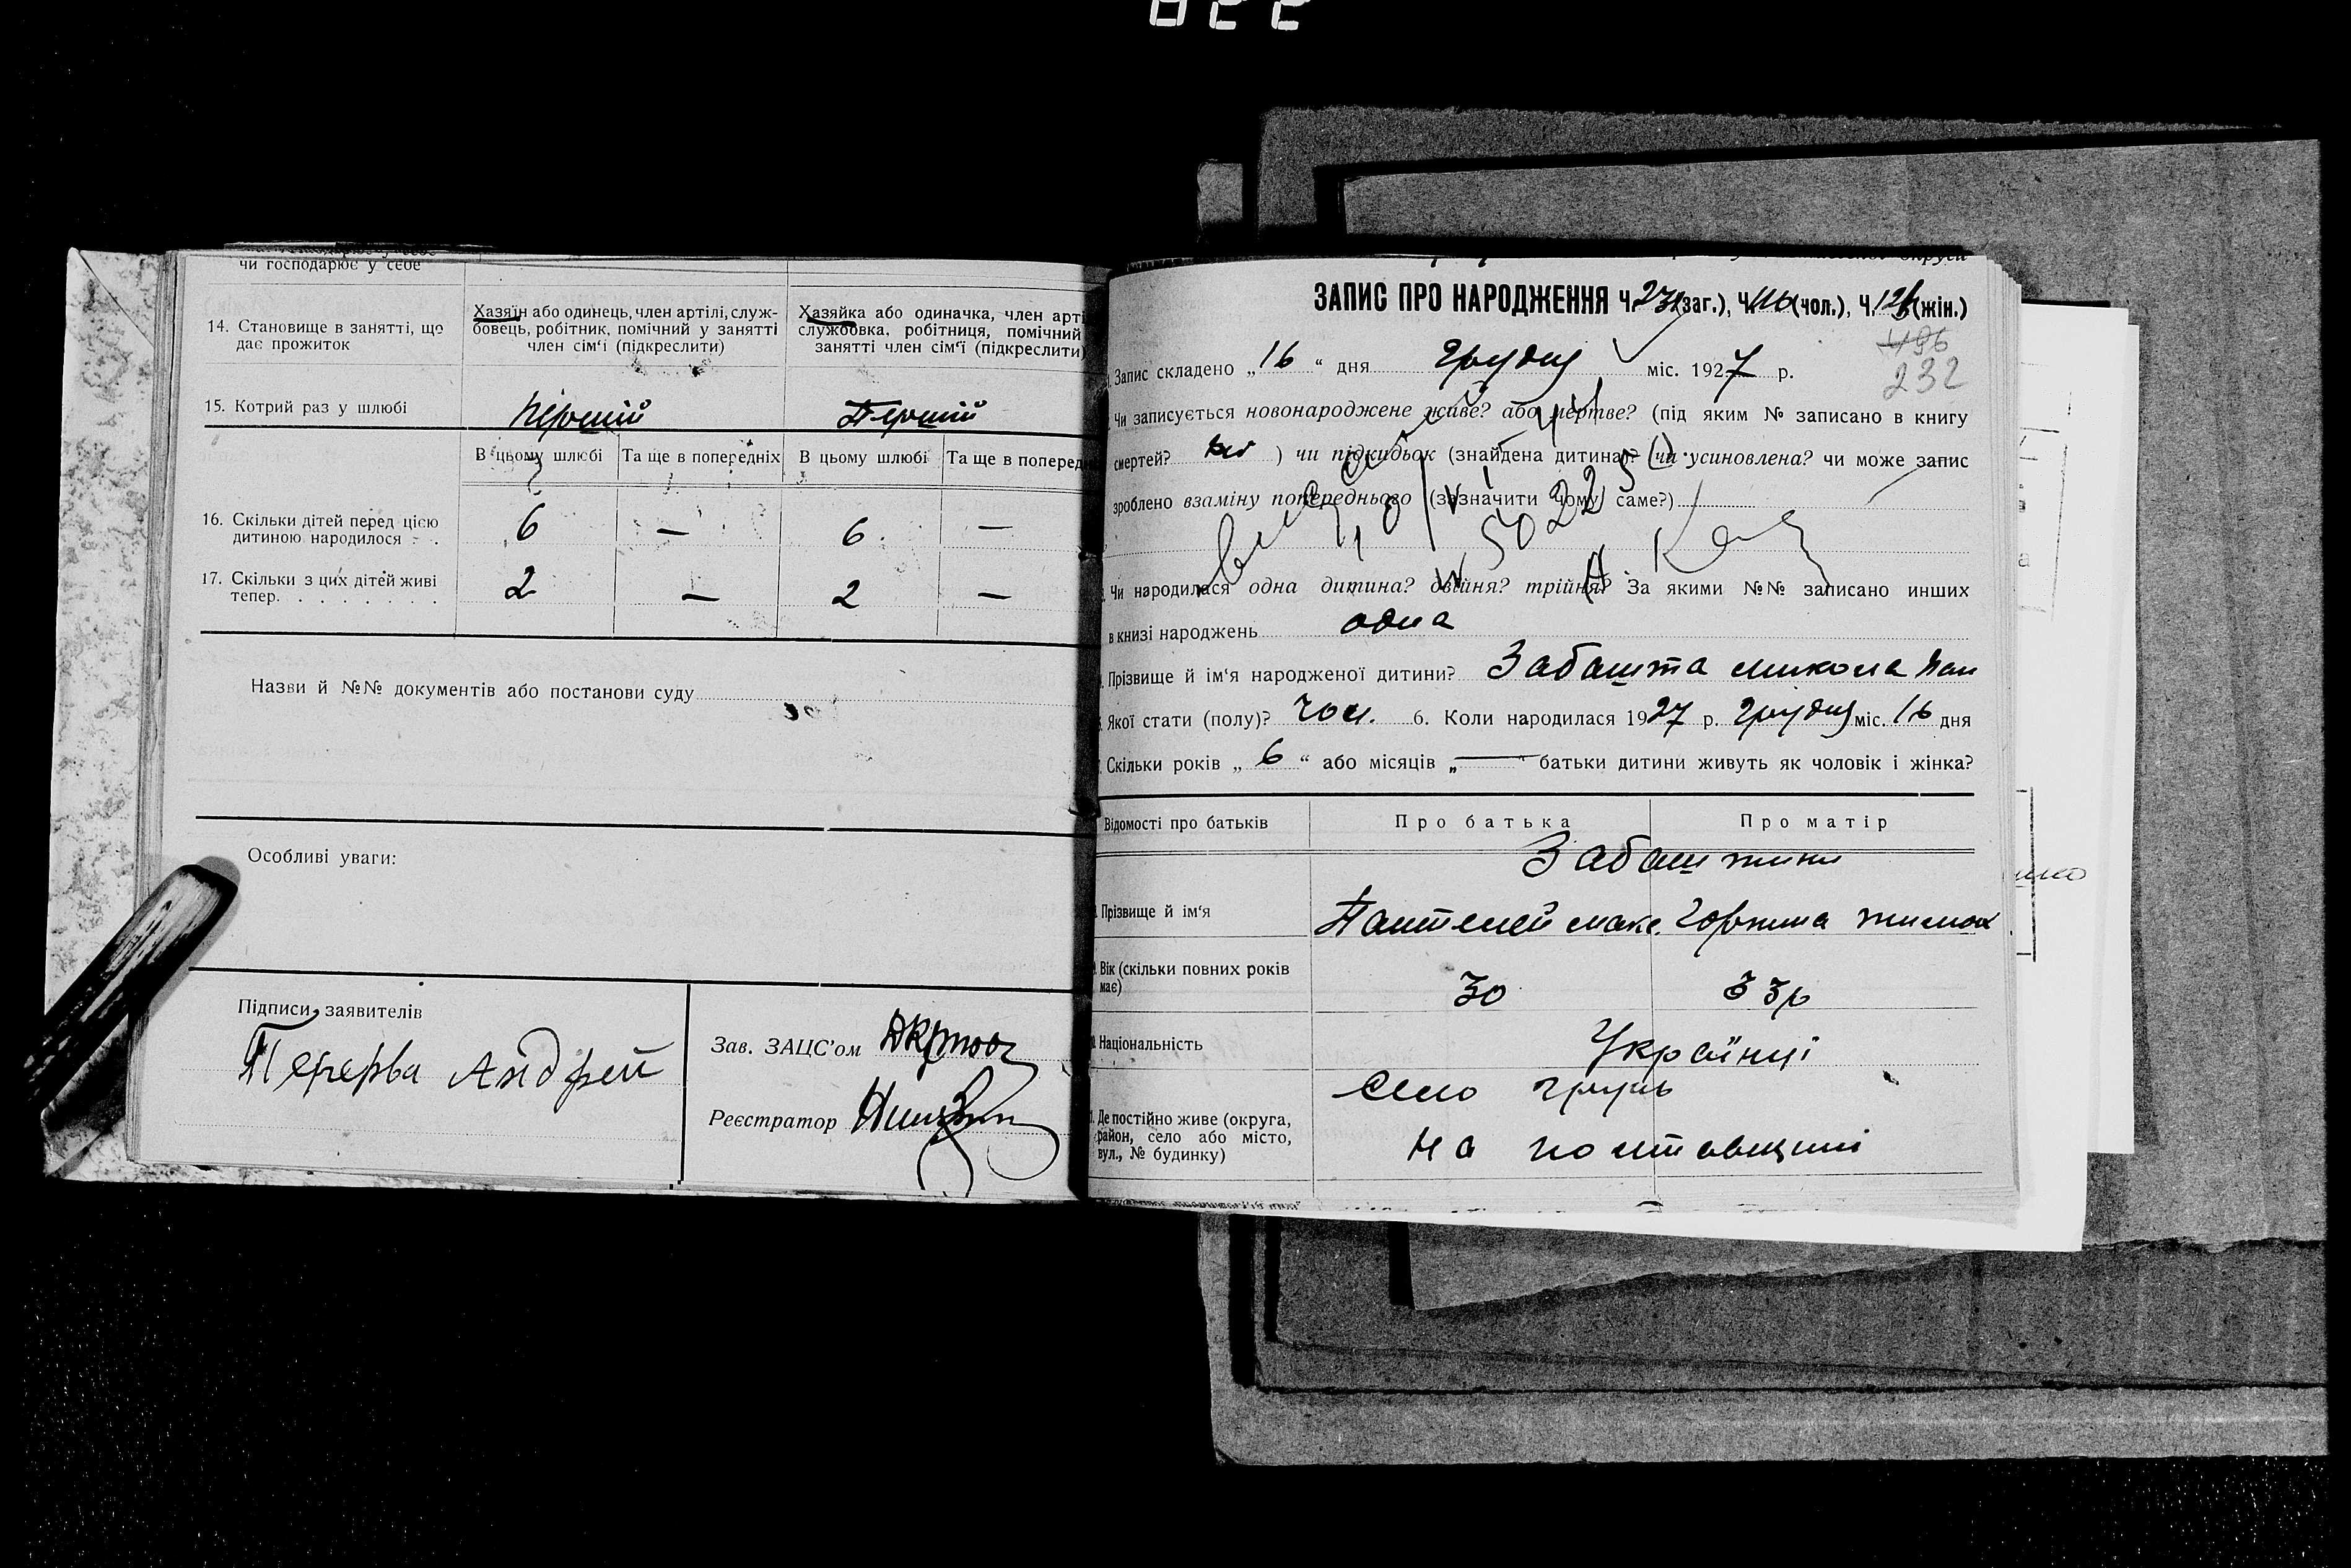 022
чи господарює у себе
14. Становище в занятті, що дає прожиток
Хазяїн або одинець, член артілі, служ-
бовець, робітник, помічний у занятті
член сім'ї (підкреслити)
Хазяйка або одиначка, член арті
службовка, робітниця, помічний
занятті член сім'ї (підкреслити)
15. Котрий раз у шлюбі
Перший
В цьому шлюбі Та ще в попередніх В цьому шлюбі Та ще в поперед
16. Скільки дітей перед цією
дитиною народилося . .
6 — 6 —
17. Скільки з цих дітей живі
тепер. . . . . . . .
2 — 2 —
Назви й №№ документів або постанови суду
Особливі уваги:
Підписи заявителів
Перерва Андрей
Зав. ЗАЦС'ом
Реєстратор
округи
ЗАПИС ПРО НАРОДЖЕННЯ Ч. (заг.), Ч. (чол.), Ч. (жін.)
496
232
Запис складено „16" дня грудня міс. 1927 р.
Чи записується новонароджене живе? або мертве? (під яким № записано в книгу
смертей? ) чи підкидьок (знайдена дитина)? (чи усиновлена? чи може запис
зроблено взаміну попереднього (зазначити чому саме?)
5022
Чи народилася одна дитина? двійня? трійня? За якими №№ записано инших
в книзі народжень одна
Прізвище й ім'я народженої дитини? Забашта микола Пан
Якої стати (полу)? чол. 6. Коли народилася 1927 р. грудня міс. 16 дня
Скільки років „ 6 " або місяців „—" батьки дитини живуть як чоловік і жінка?
Відомості про батьків Про батька Про матір
Прізвище й ім'я
Пантелей макс.
Вік (скільки повних років
має)
30 33р
Національність
Українці
Де постійно живе (округа,
район, село або місто,
вул., № будинку)
Село
на полтавщині